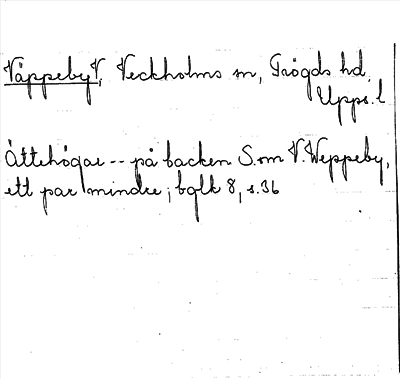 Väppeby V, Veckholms sn, Trögds hd.
Upps. l
Ättehögar -- på backen S.om V. Weppeby,
ett par mindre; bglk 8, s.36